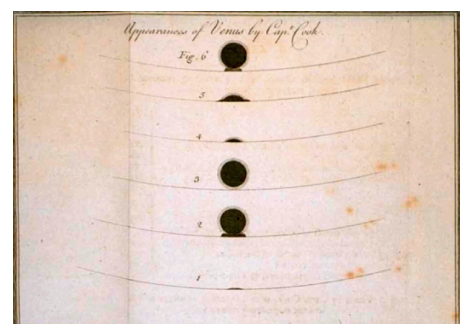 Appearances of Venus by Capt. Cook.
Fig. 6
5
4
3
2
1